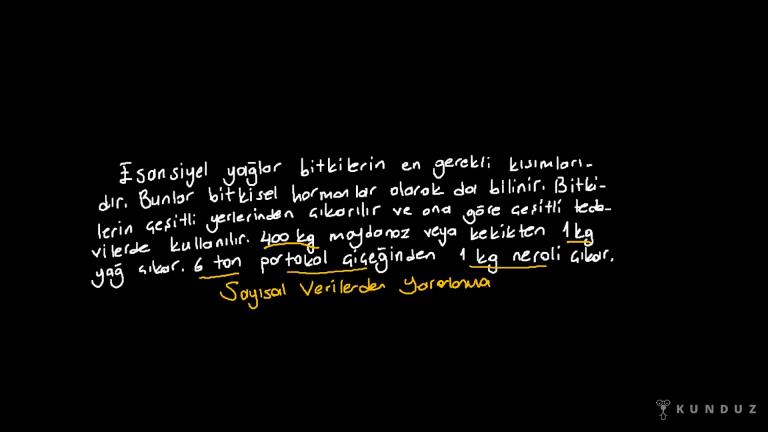 Esansiyel yağlar bitkilerin en gerekli kısımları-
dır. Bunlar bitkisel hormonlar olarak da bilinir. Bitki-
lerin çeşitli yerlerinden çıkarılır ve ona göre çeşitli teda-
vilerde kullanılır. 400 kg maydanoz veya kekikten 1 kg
yağ çıkar. 6 ton portakal çiçeğinden 1 kg neroli çıkar.
Sayısal Verilerden Yararlanma
KUNDUZ